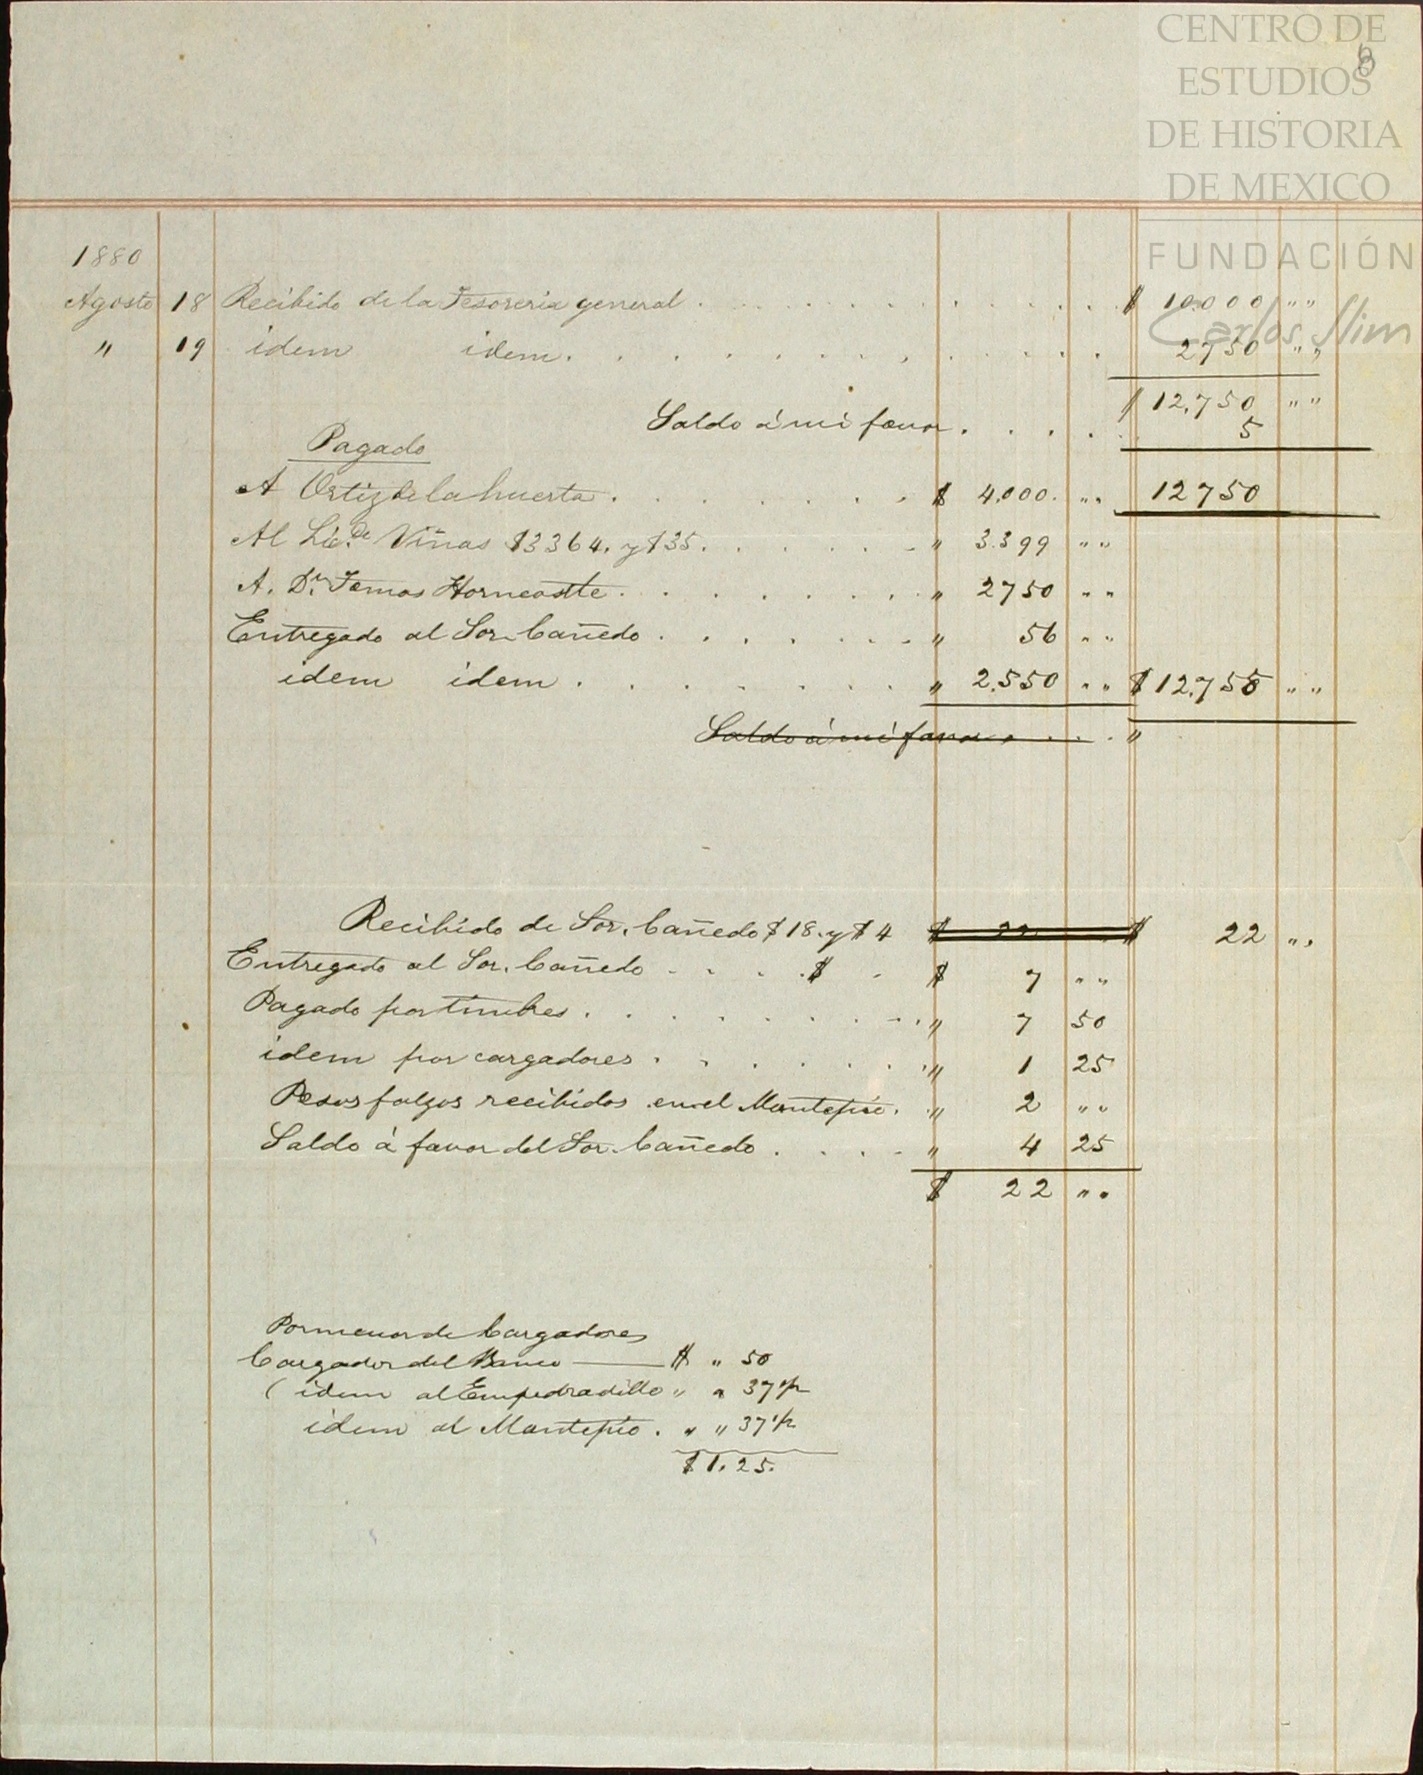 CENTRO DE
ESTUDIOS
DE HISTORIA
DE MEXICO
FUNDACIÓN
Carlos Slim
8
1880
Agosto 18 Recibido de la Tesoreria general . . . . $ 10.000 „ „
„ 19 idem idem . . . . 2750 „ „
$ 12,750 „ „
Saldo á mi favor . . . . 5
Pagado
A Ortiz de la huerta . . . . $ 4,000. „ „ 12750
Al Licdo Viñas $3364. y $35. . . . „ 3.399 „ „
A. Dn. Tomas Horncastle . . . . „ 2750 „ „
Entregado al Sor. Cañedo . . . . „ 56 „ „
idem idem . . . . „ 2.550 „ „ $ 12,755 „ „
Saldo á mi favor . . . . „
Recibido de Sor. Cañedo $18. y $4 $ 22 $ 22 „ „
Entregado al Sor. Cañedo . . . . $ . $ 7 „ „
Pagado por timbres . . . . „ 7 50
idem por cargadores . . . . „ 1 25
Pesos falsos recibidos en el Montepio. „ 2 „ „
Saldo á favor del Sor. Cañedo . . . . „ 4 25
$ 22 „ „
Pormenor de Cargadores
Cargador del Banco — $ „ 50
( idem al Empedradillo „ „ 37 1/2
idem al Montepio . „ „ 37 1/2
$ 1. 25.